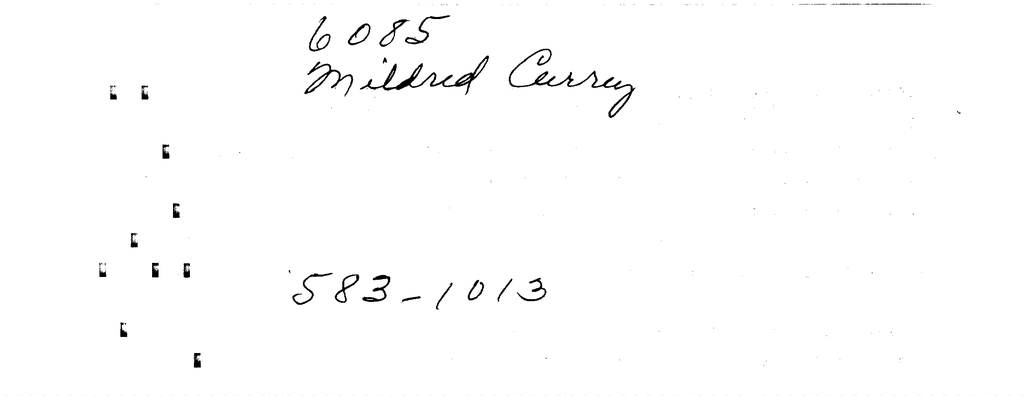 6085
Mildred Currey
583-1013